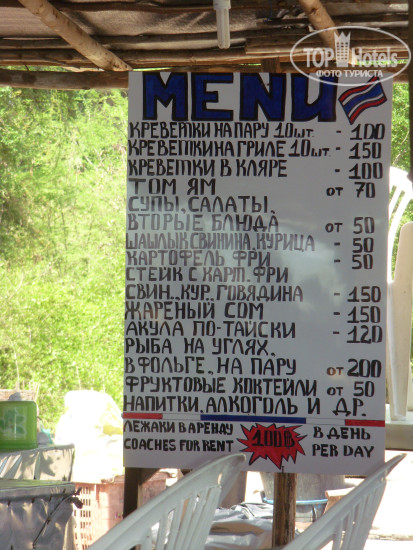 TOPHotels
ФОТО ТУРИСТА
MENU
КРЕВЕТКИ НА ПАРУ 10шт. - 100
КРЕВЕТКИ НА ГРИЛЕ 10шт. - 150
КРЕВЕТКИ В КЛЯРЕ - 100
ТОМ ЯМ от 70
СУПЫ, САЛАТЫ,
ВТОРЫЕ БЛЮДА от 50
ШАШЛЫК СВИНИНА, КУРИЦА - 50
КАРТОФЕЛЬ ФРИ - 50
СТЕЙК С КАРТ. ФРИ
СВИН., КУР., ГОВЯДИНА - 150
ЖАРЕНЫЙ СОМ - 150
АКУЛА ПО-ТАЙСКИ - 120
РЫБА НА УГЛЯХ,
В ФОЛЬГЕ, НА ПАРУ от 200
ФРУКТОВЫЕ КОКТЕЙЛИ от 50
НАПИТКИ, АЛКОГОЛЬ И ДР.
ЛЕЖАКИ В АРЕНДУ 100В В ДЕНЬ
COACHES FOR RENT PER DAY